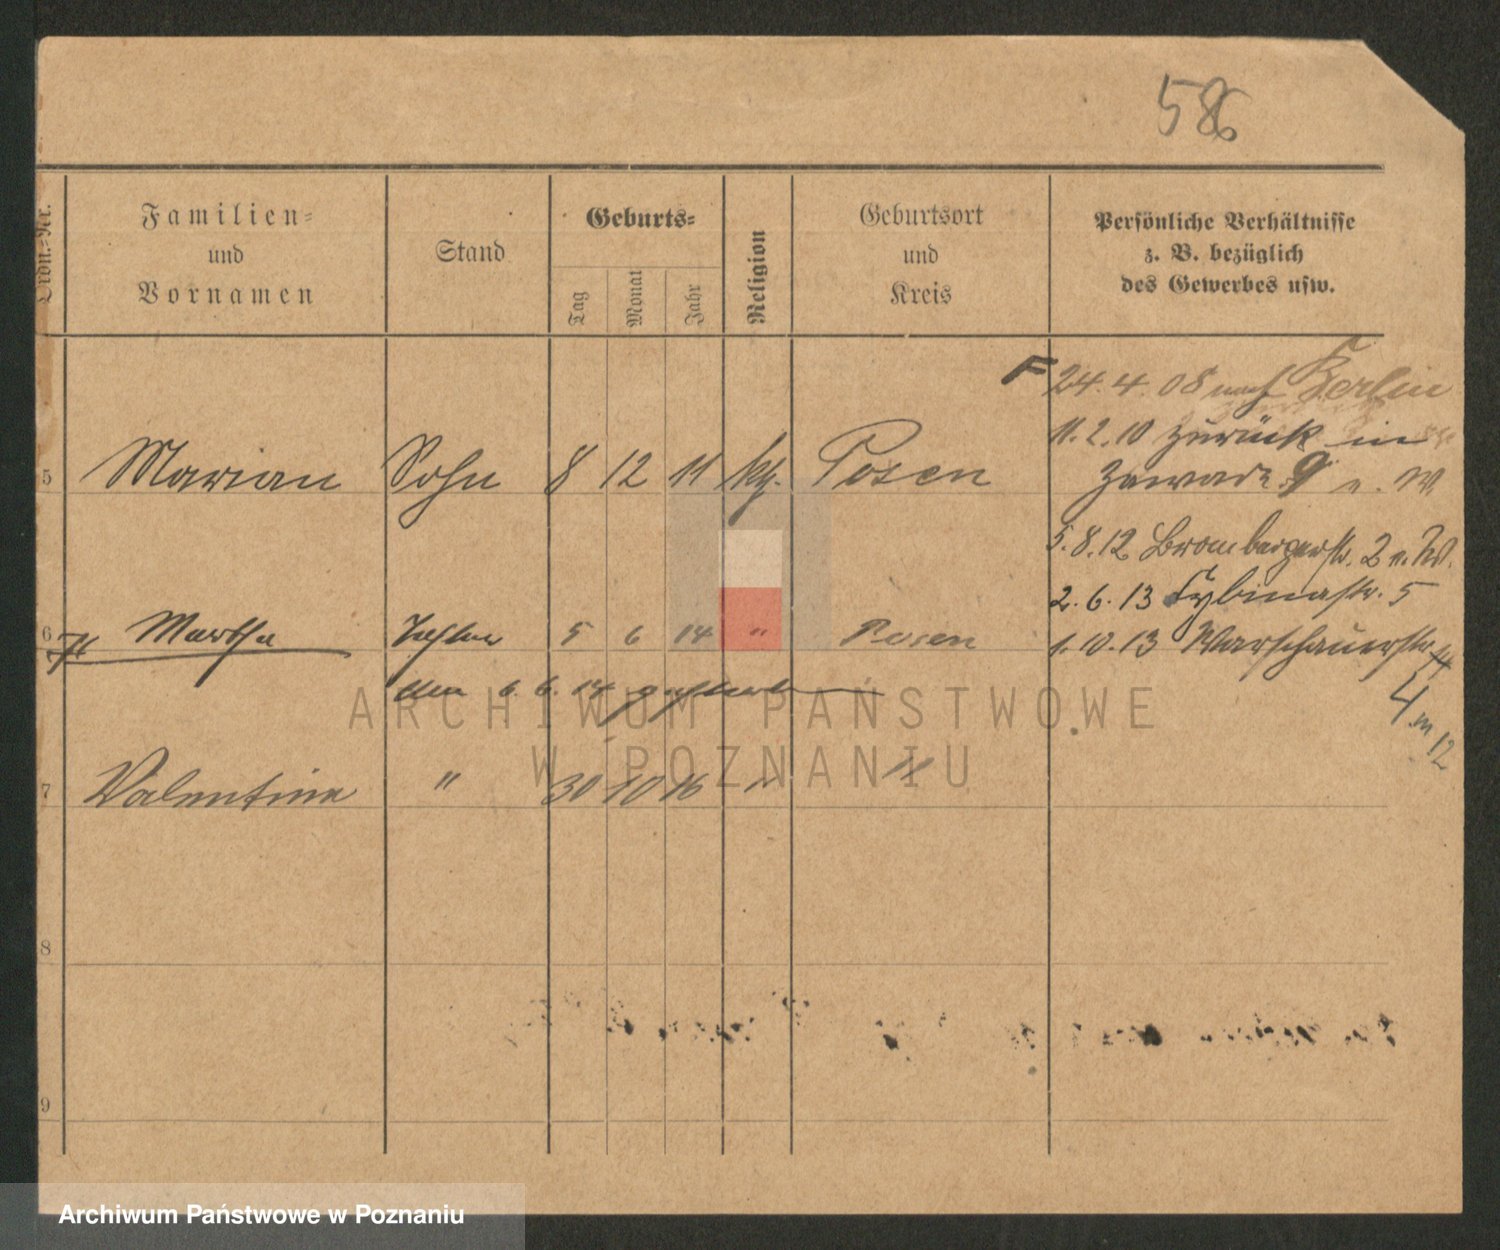 586
Ordn.-Nr.
Familien-
und
Vornamen
Stand
Geburts-
Tag
Monat
Jahr
Religion
Geburtsort
und
Kreis
Persönliche Verhältnisse
z. B. bezüglich
des Gewerbes usw.
24. 4. 08 nach Berlin
11. 2. 10 zurück in
5 Marian Sohn 8 12 11 kth. Posen
Zawade 9 n. W.
5. 8. 12 Brombergerstr. 2 n. W.
2. 6. 13 Cybinastr. 5
6 Martha Tochter 5 6 14 " Posen
1. 10. 13 Warschauerstr.
den 6. 6. 14 gestorben
4
12
7 Valentina " 30 10 16 " "
8
9
ARCHIWUM PAŃSTWOWE
W POZNANIU
Archiwum Państwowe w Poznaniu